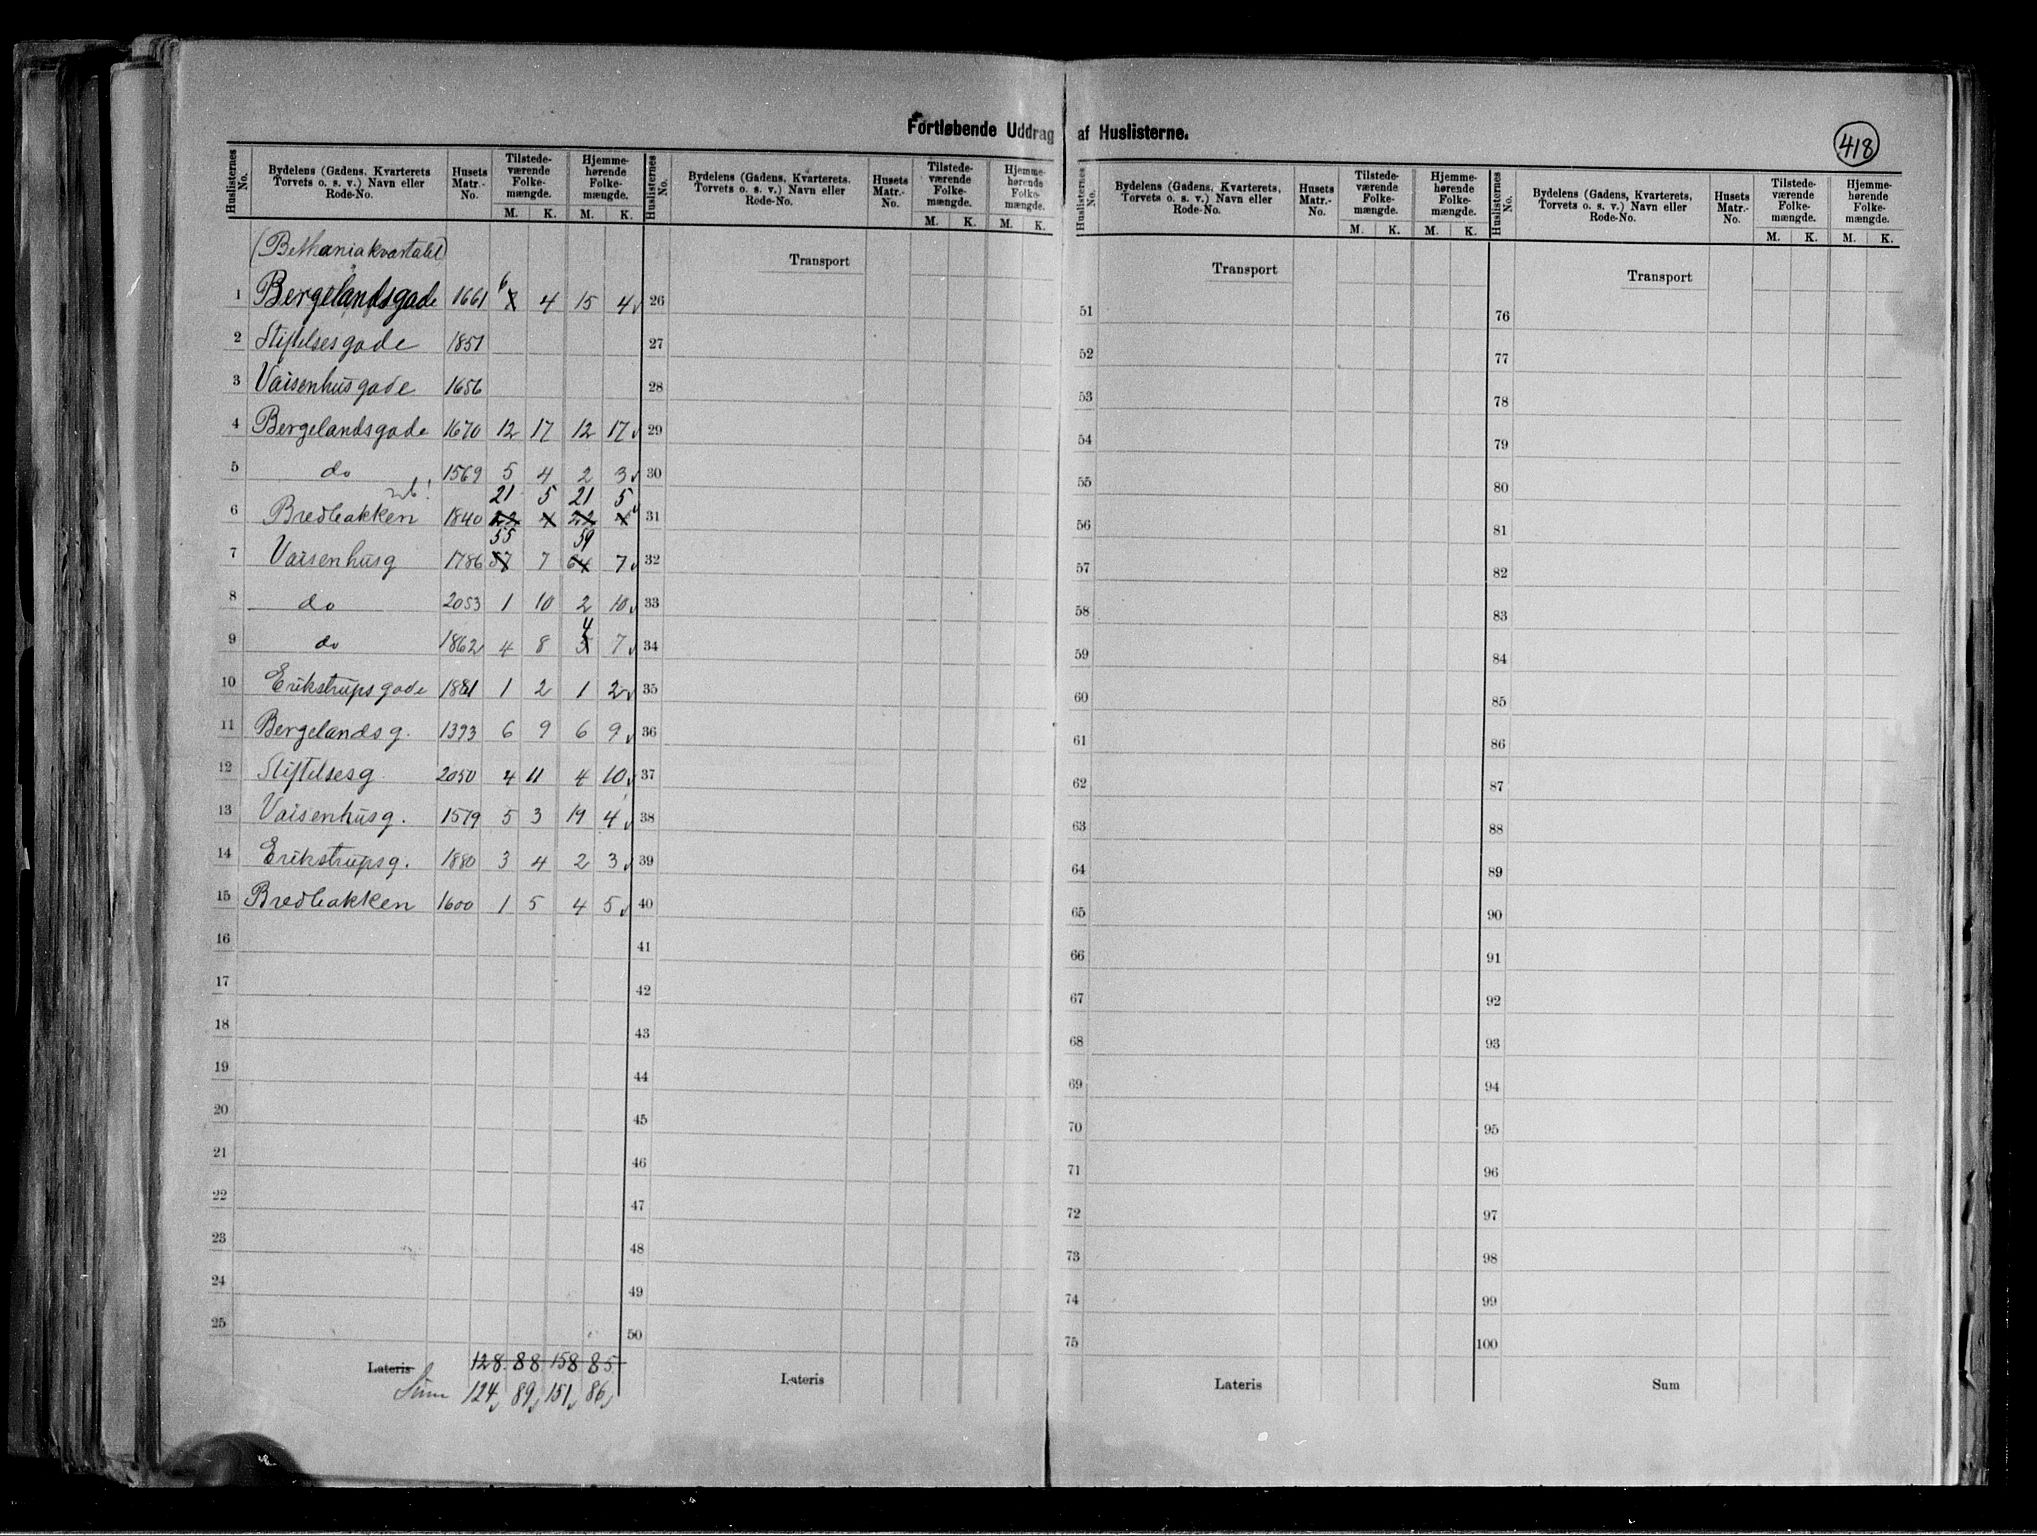 Fortløbende Uddrag af Huslisterne.
418
Huslisternes No. | Bydelens (Gadens, Kvarterets Torvets o. s. v.) Navn eller Rode-No. | Husets Matr.-No. | Tilstedeværende Folkemængde. M. K. | Hjemmehørende Folkemængde. M. K.
(Bethaniakvartalet)
1 Bergelandsgade 1661 6 4 15 4
2 Stiftelsesgade 1851
3 Vaisenhusgade 1656
4 Bergelandsgade 1670 12 17 12 17
5 do 1569 5 4 2 3
21 5 21 5
6 Bredbakken 1840 22 4 22 4
55 59
7 Vaisenhusg 1786 57 7 64 7
8 do 2053 1 10 2 10
4
9 do 1862 4 8 5 7
10 Erikstrupsgade 1881 1 2 1 2
11 Bergelandsg. 1393 6 9 6 9
12 Stiftelsesg 2050 4 11 4 10
13 Vaisenhusg. 1579 5 3 19 4
14 Erikstrupsg. 1880 3 4 2 3
15 Bredbakken 1600 1 5 4 5
16
17
18
19
20
21
22
23
24
25
Lateris 128 88 158 85
Sum 124 89 151 86
Huslisternes No. | Bydelens (Gadens, Kvarterets, Torvets o. s. v.) Navn eller Rode-No. | Husets Matr.-No. | Tilstedeværende Folkemængde. M. K. | Hjemmehørende Folkemængde. M. K.
Transport
26
27
28
29
30
31
32
33
34
35
36
37
38
39
40
41
42
43
44
45
46
47
48
49
50
Lateris
Huslisternes No. | Bydelens (Gadens, Kvarterets, Torvets o. s. v.) Navn eller Rode-No. | Husets Matr.-No. | Tilstedeværende Folkemængde. M. K. | Hjemmehørende Folkemængde. M. K.
Transport
51
52
53
54
55
56
57
58
59
60
61
62
63
64
65
66
67
68
69
70
71
72
73
74
75
Lateris
Huslisternes No. | Bydelens (Gadens, Kvarterets, Torvets o. s. v.) Navn eller Rode-No. | Husets Matr.-No. | Tilstedeværende Folkemængde. M. K. | Hjemmehørende Folkemængde. M. K.
Transport
76
77
78
79
80
81
82
83
84
85
86
87
88
89
90
91
92
93
94
95
96
97
98
99
100
Sum